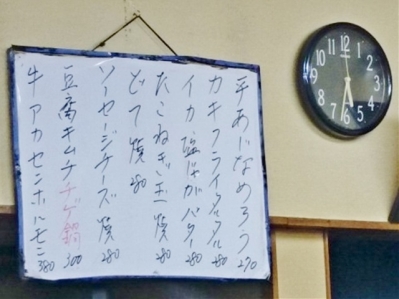 平あじなめろう 270
カキフライタルタル 280
イカ塩じゃがバター 280
たこねぎ玉焼 280
どて焼 280
ソーセージチーズ焼 280
豆腐キムチチゲ鍋 300
牛アカセンホルモン 380
12
1
2
3
4
5
6
7
8
9
10
11